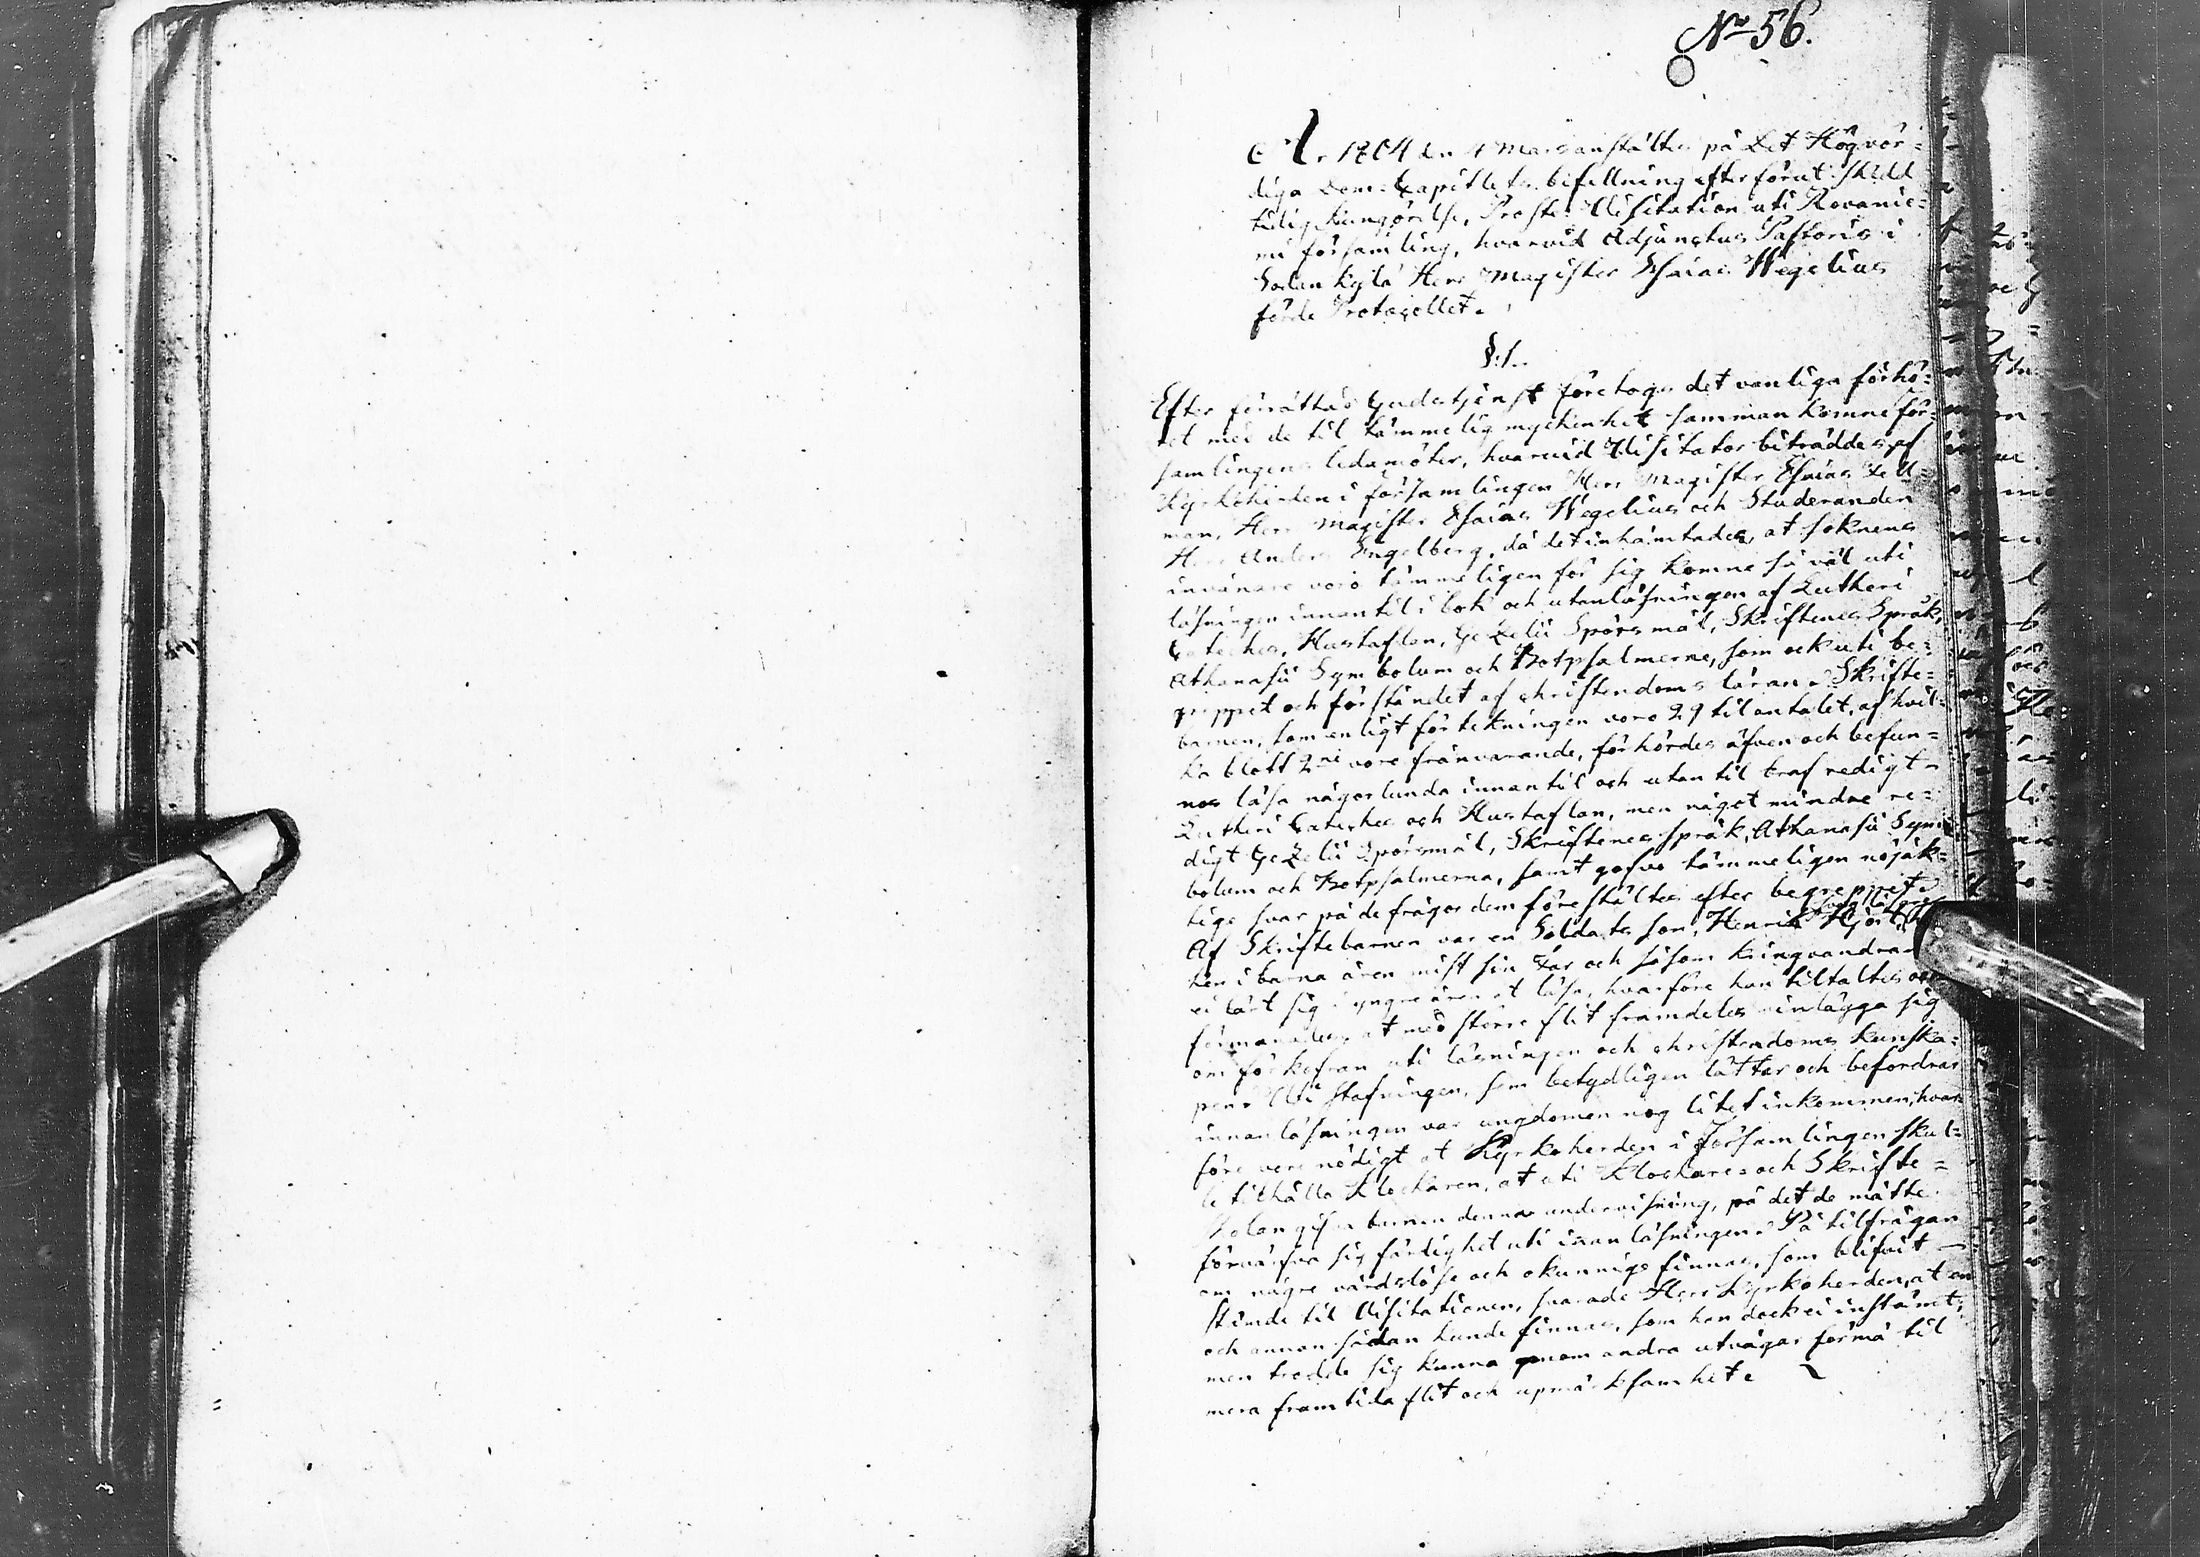 No 56.
År 1804 den 4 Mars anstältes på Det Högvör=
diga Dom=Capitlets befallning efter förut skedd
tidig kungörelse, Prosts Visitation uti Rovanie=
mi församling, hvarvid Adjunctus Pastoris i
Sodankylä Herr Magister Esaias Wegelius
förde Protocollet.
§.1.
Efter förrättad Gudstjenst företogs det vanliga förhö=
ret med de til tämmelig myckenhet samman komne för=
samlingens ledamöter, hvarvid Visitator biträddes af
Kyrkoherden i församlingen Herr Magister Esaias Fell=
man, Herr Magister Esaias Wegelius och Studeranden
Herr Anders Engelberg, då det inhämtades, at soknens
invånare voro tämmeligen för sig komne så väl uti
läsningen innantil i bok och utanläsningen af Lutheri
Cateches, Hustaflan, Gezelii Spörsmål, Skriftenes Språk,
Athanasii Symbolum och Botpsalmerne, som ock uti be=
greppet och förståndet af christendoms läran. Skrifte=
barnen, som enligt förtekningen voro 29 til antalet, af hvil=
ka blott 2ne voro frånvarande, förhördes äfven och befun=
nos läsa någorlunda innantil och utantil braf redigt
Lutheri Cateches och Hustaflan, men något mindre re=
digt Gezelii Spörsmål, Skriftenes språk, Athanasii Sym=
bolum och Botpsalmerna, samt gofvo tämmeligen nöjak=
tige svar på de frågor dem föreställtes efter begreppet.
Af Skriftebarnen var en Soldats son, Henrik Hjort,
hen i barna åren mist sin Far och såsom kringvandran
ei lärt sig i yngre åren at läsa, hvarföre han tiltaltes och
förmanades at med större flit framdeles vinlägga sig
om förkofran uti läsningen och christendoms kunska=
pen. Uti stafningen, som betydligen lättar och befordrar
innanläsningen var ungdomen nog litet inkommen, hvar=
före vore nödigt at Kyrkoherden i Församlingen skul=
le tilhålla Klockaren, at uti Klockare= och Skrifte=
skolan gifva barnen denna undervisning, på det de måtte
förvärfva sig färdighet uti innanläsningen. På tilfrågan
om någre vårdslöse och okunnige finnas, som blifvit
stämde til Visitationen, svarade Herr Kyrkoherden, at en
och annan sådan kunde finnas, som han dock ei instämt,
men trodde sig kunna genom andra utvägar förmå til
mera framtida flit och upmärksamhet.